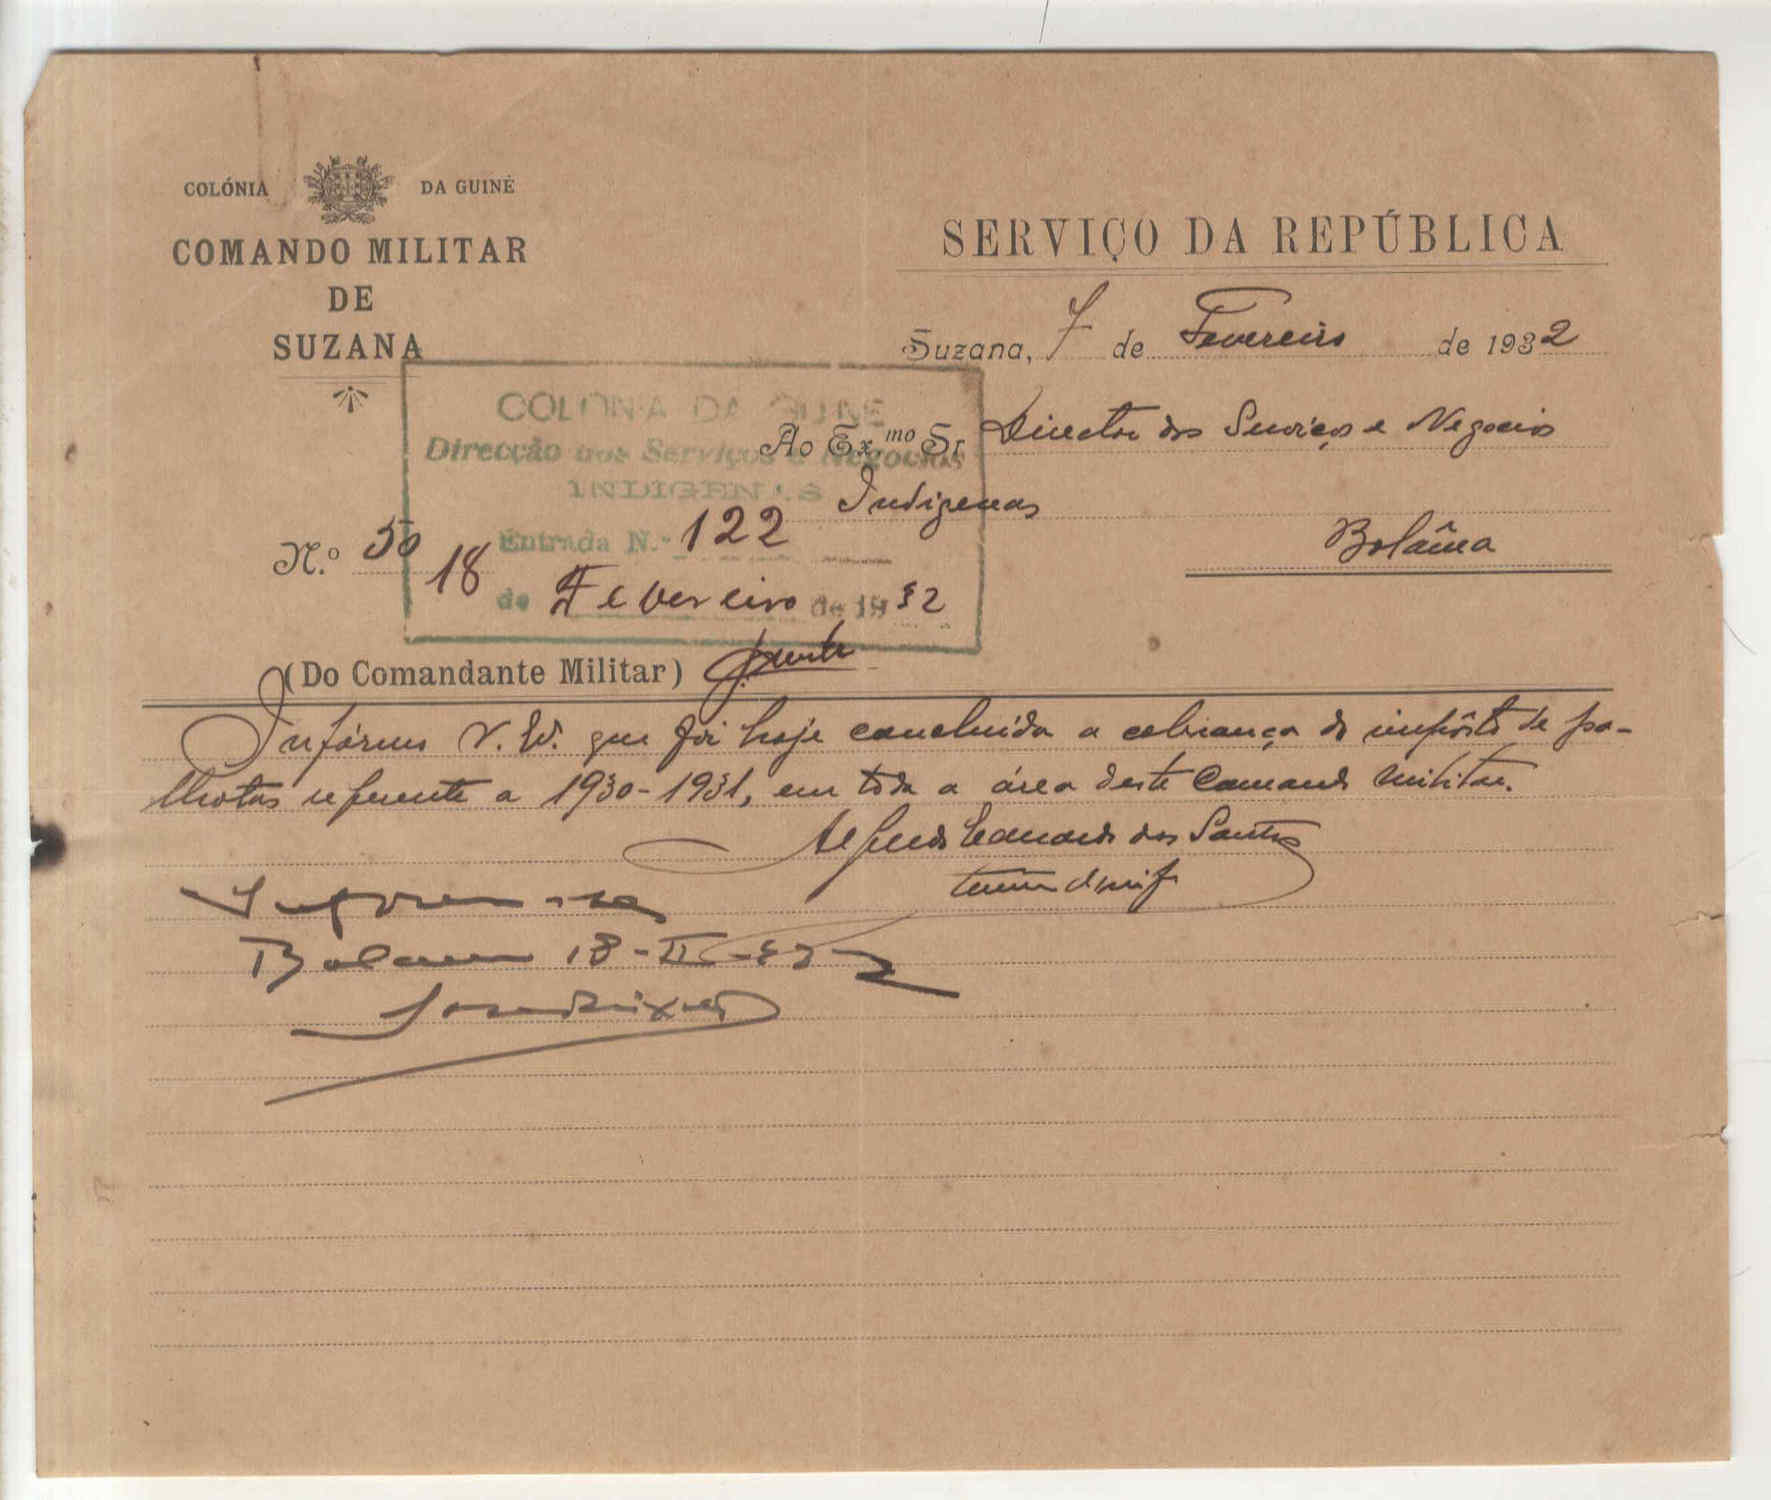 COLÓNIA DA GUINÉ
COMANDO MILITAR
DE
SUZANA
SERVIÇO DA REPÚBLICA
Suzana, 7 de Fevereiro de 1932
COLONIA DA GUINÉ
Direcção dos Serviços e Negocios
INDIGENAS
Entrada N.º 122
18 de Fevereiro de 1932
Ao Ex.mo Sr Director dos Serviços e Negocios
Indigenas
Bolâma
N.º 50
(Do Comandante Militar)
Infórmo V. Ex. que foi hoje concluída a cobrança do impôsto de pa-
lhotas referente a 1930-1931, em toda a área deste Comando Militar.
Alfredo Eduardo dos Santos
Bolama 18-II-932